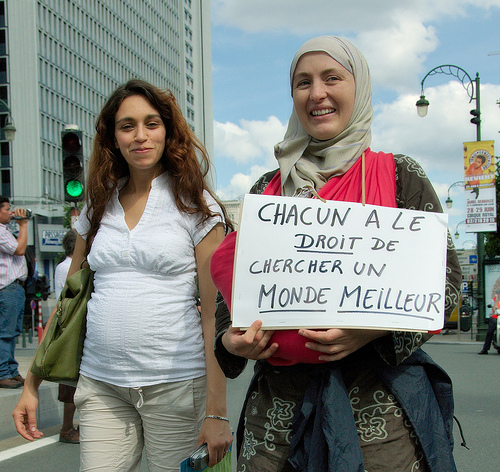 CHACUN A LE
DROIT DE
CHERCHER UN
MONDE MEILLEUR